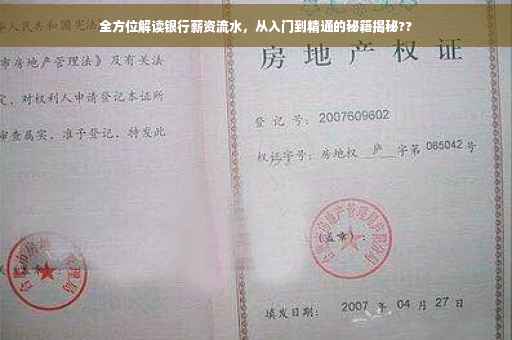 全方位解读银行薪资流水，从入门到精通的秘籍揭秘??
人民共和国宪法
市房地产管理法》及有关法
定，对权利人申请登记本证所
审查属实，准予登记，特发此
房地产权
登记号：2007609602
权证字号：房地权 庐 字第 085042 号
(盖章)：
填发日期： 2007 年 04 月 27 日